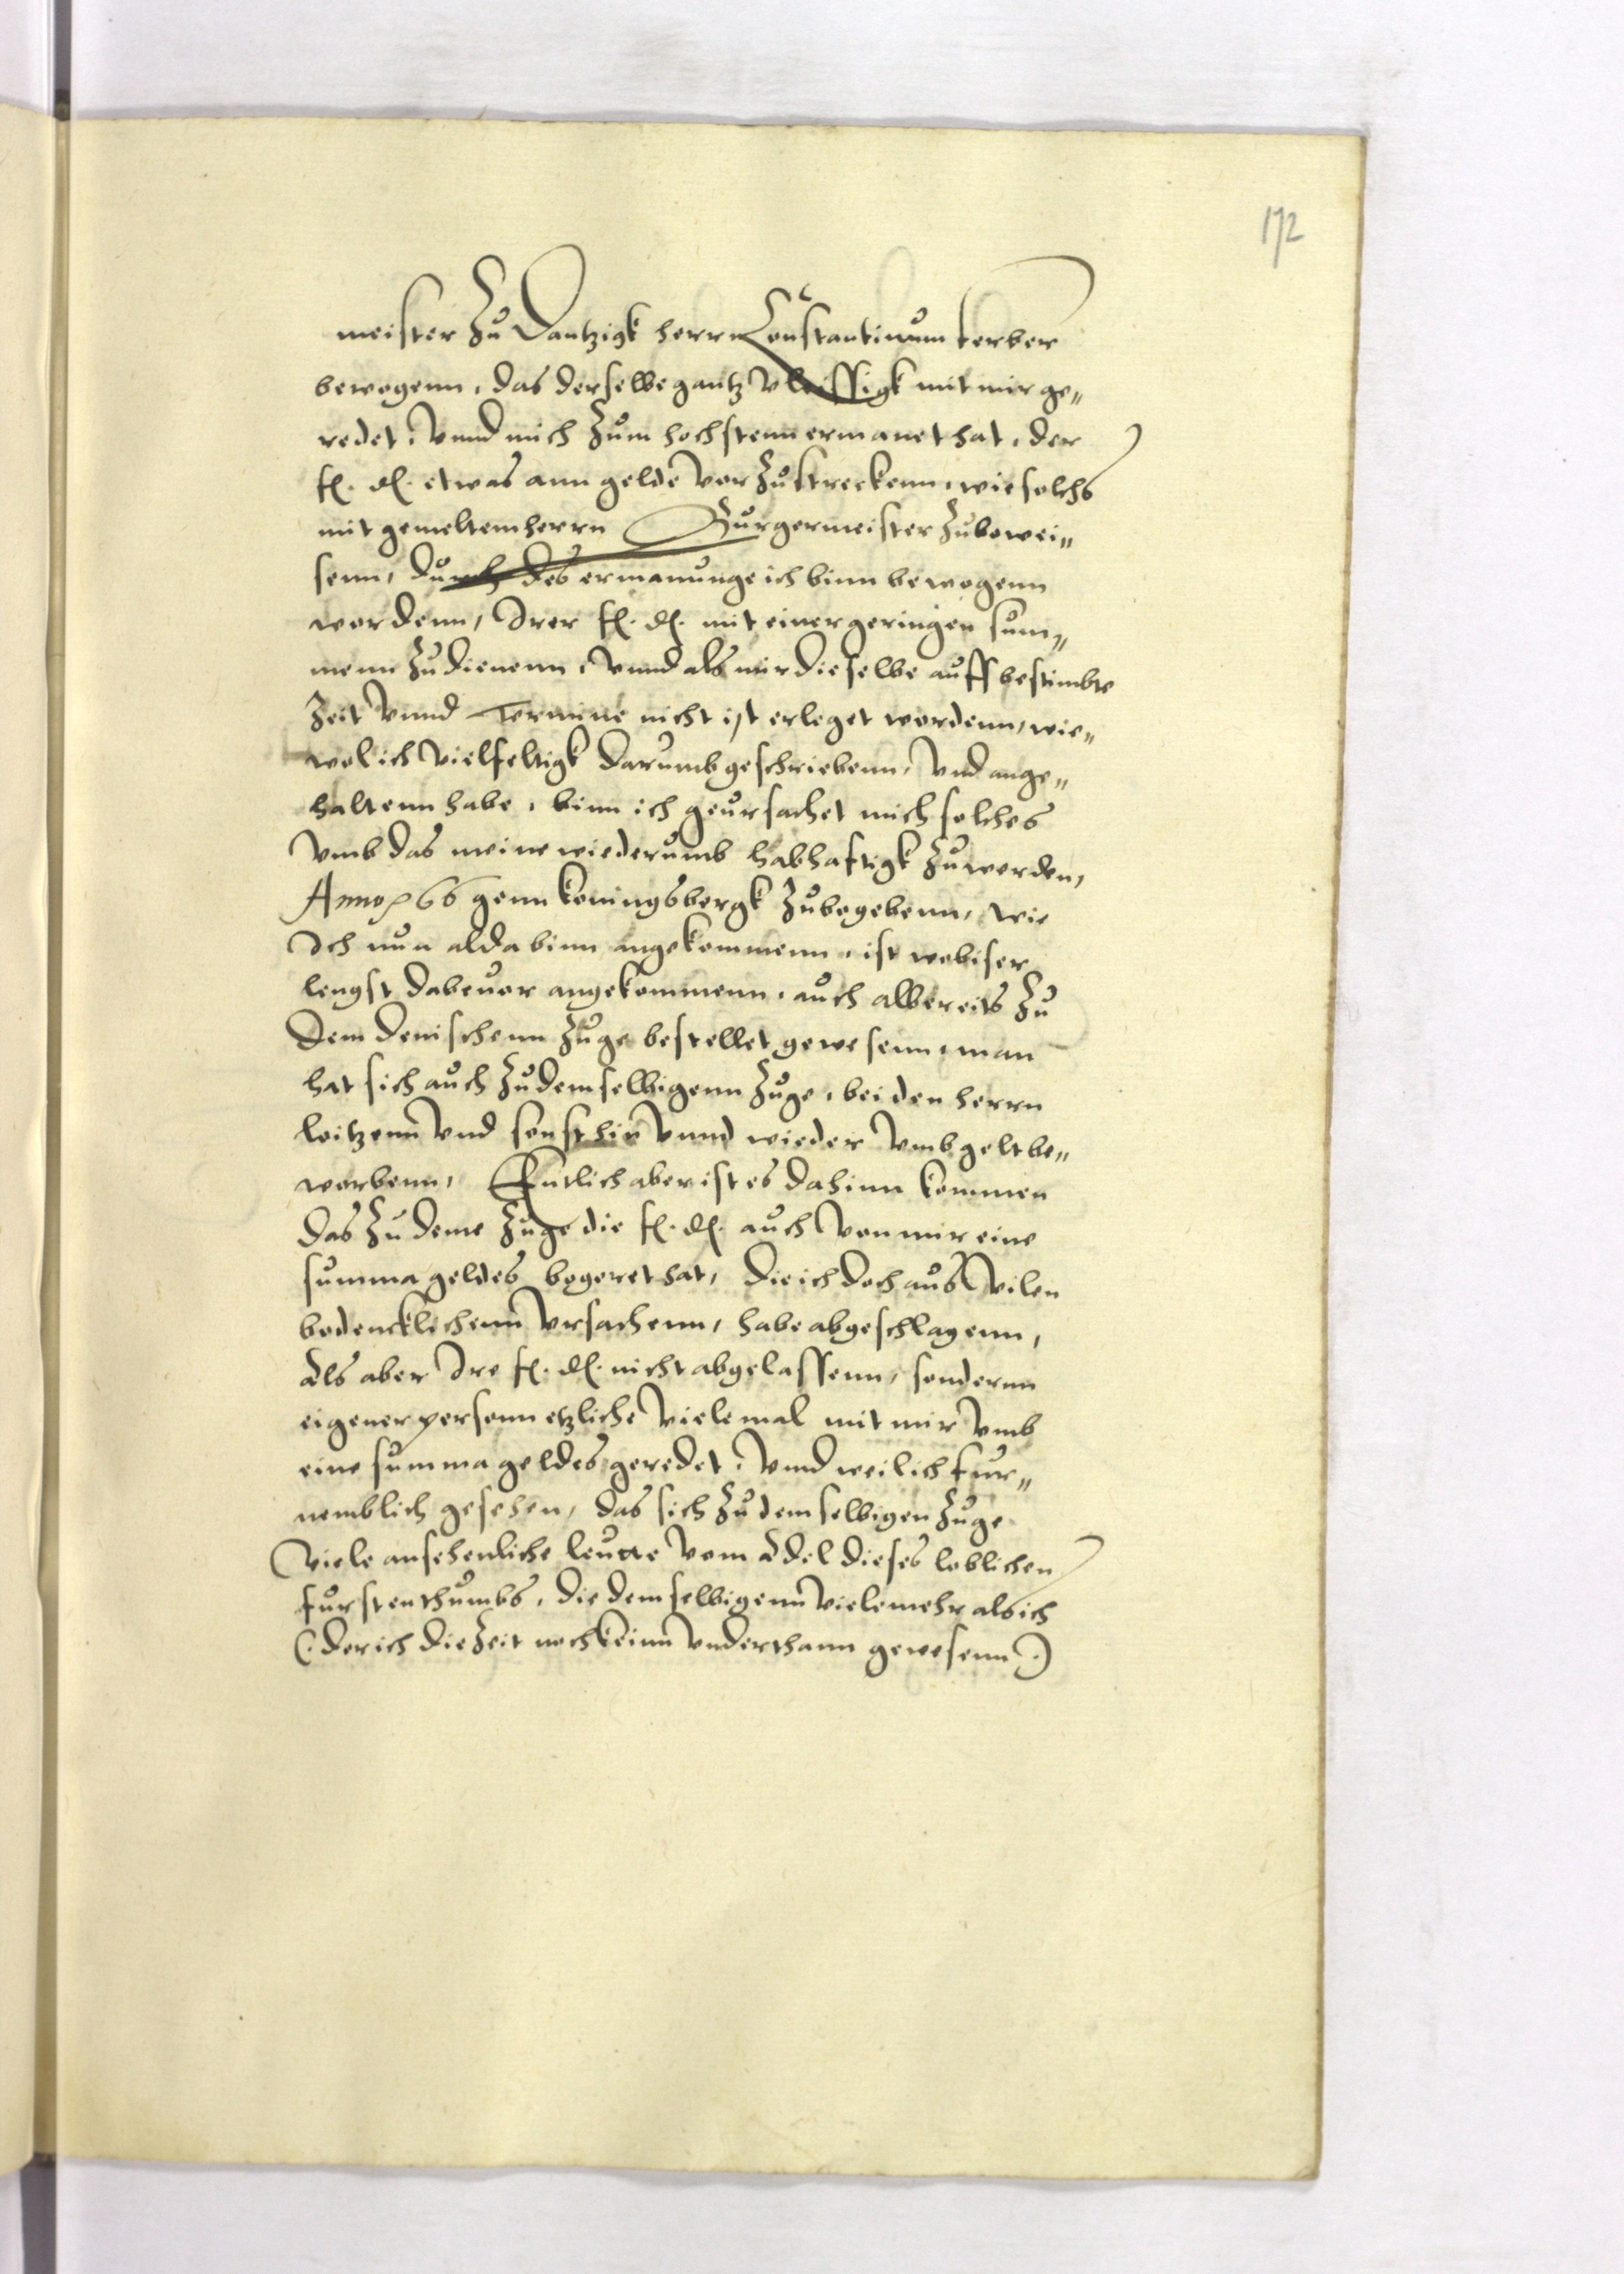 172
meister zu Dantzigk herrn Constantinum ferber
bewogenn, das derselbe gantz vleissigk mit mir ge„
redet, vnnd mich zum hochstenn ermanet hat, der
f. d. etwas ann gelde vorzustreckenn, wie solchs
mit gemeltem herrn Burgermeister zubewei„
senn, durch des ermanunge ich binn bewogenn
wordenn, Irer f. d. mit einer geringen sum„
menn zudienenn, vnnd als mir dieselbe auff bestimbte
zeit vnnd Termine nicht ist erleget wordenn, wie„
wol ich vielfeltigk darumb geschriebenn, vnd ange„
haltenn habe, binn ich geursachet mich solches
vmb das meine wiederumb habhaftigk zuwerden,
Anno 66 genn koningsbergk zubegebenn, wie
Ich nun alda binn angekommenn, ist wobiser
lengst dabeuor angekommenn, auch albereits zu
dem denischenn zuge bestellet gewesenn, man
hat sich auch zu demselbigenn zuge, bei den herrn
loitzenn vnd sonst hin vnnd wieder vmb gelt be„
worbenn, Entlich aber ist es dahinn kommen
das zu deme zuge die f. d. auch von mir eine
summa geldes begeret hat, die ich doch aus vilen
bedencklichenn vrsachenn, habe abgeschlagenn,
Als aber Ire f. d. nicht abgelassenn, sondernn
eigener personn etzliche viele mal mit mir vmb
eine summa geldes geredet, vnnd weil ich fur„
nemblich gesehen, das sich zu demselbigen zuge
viele ansehenliche leutte vom Adel dieses loblichen
furstenthumbs, die demselbigenn viele mehr als ich
(: der ich die zeit noch keinn vnderthann gewesenn :)